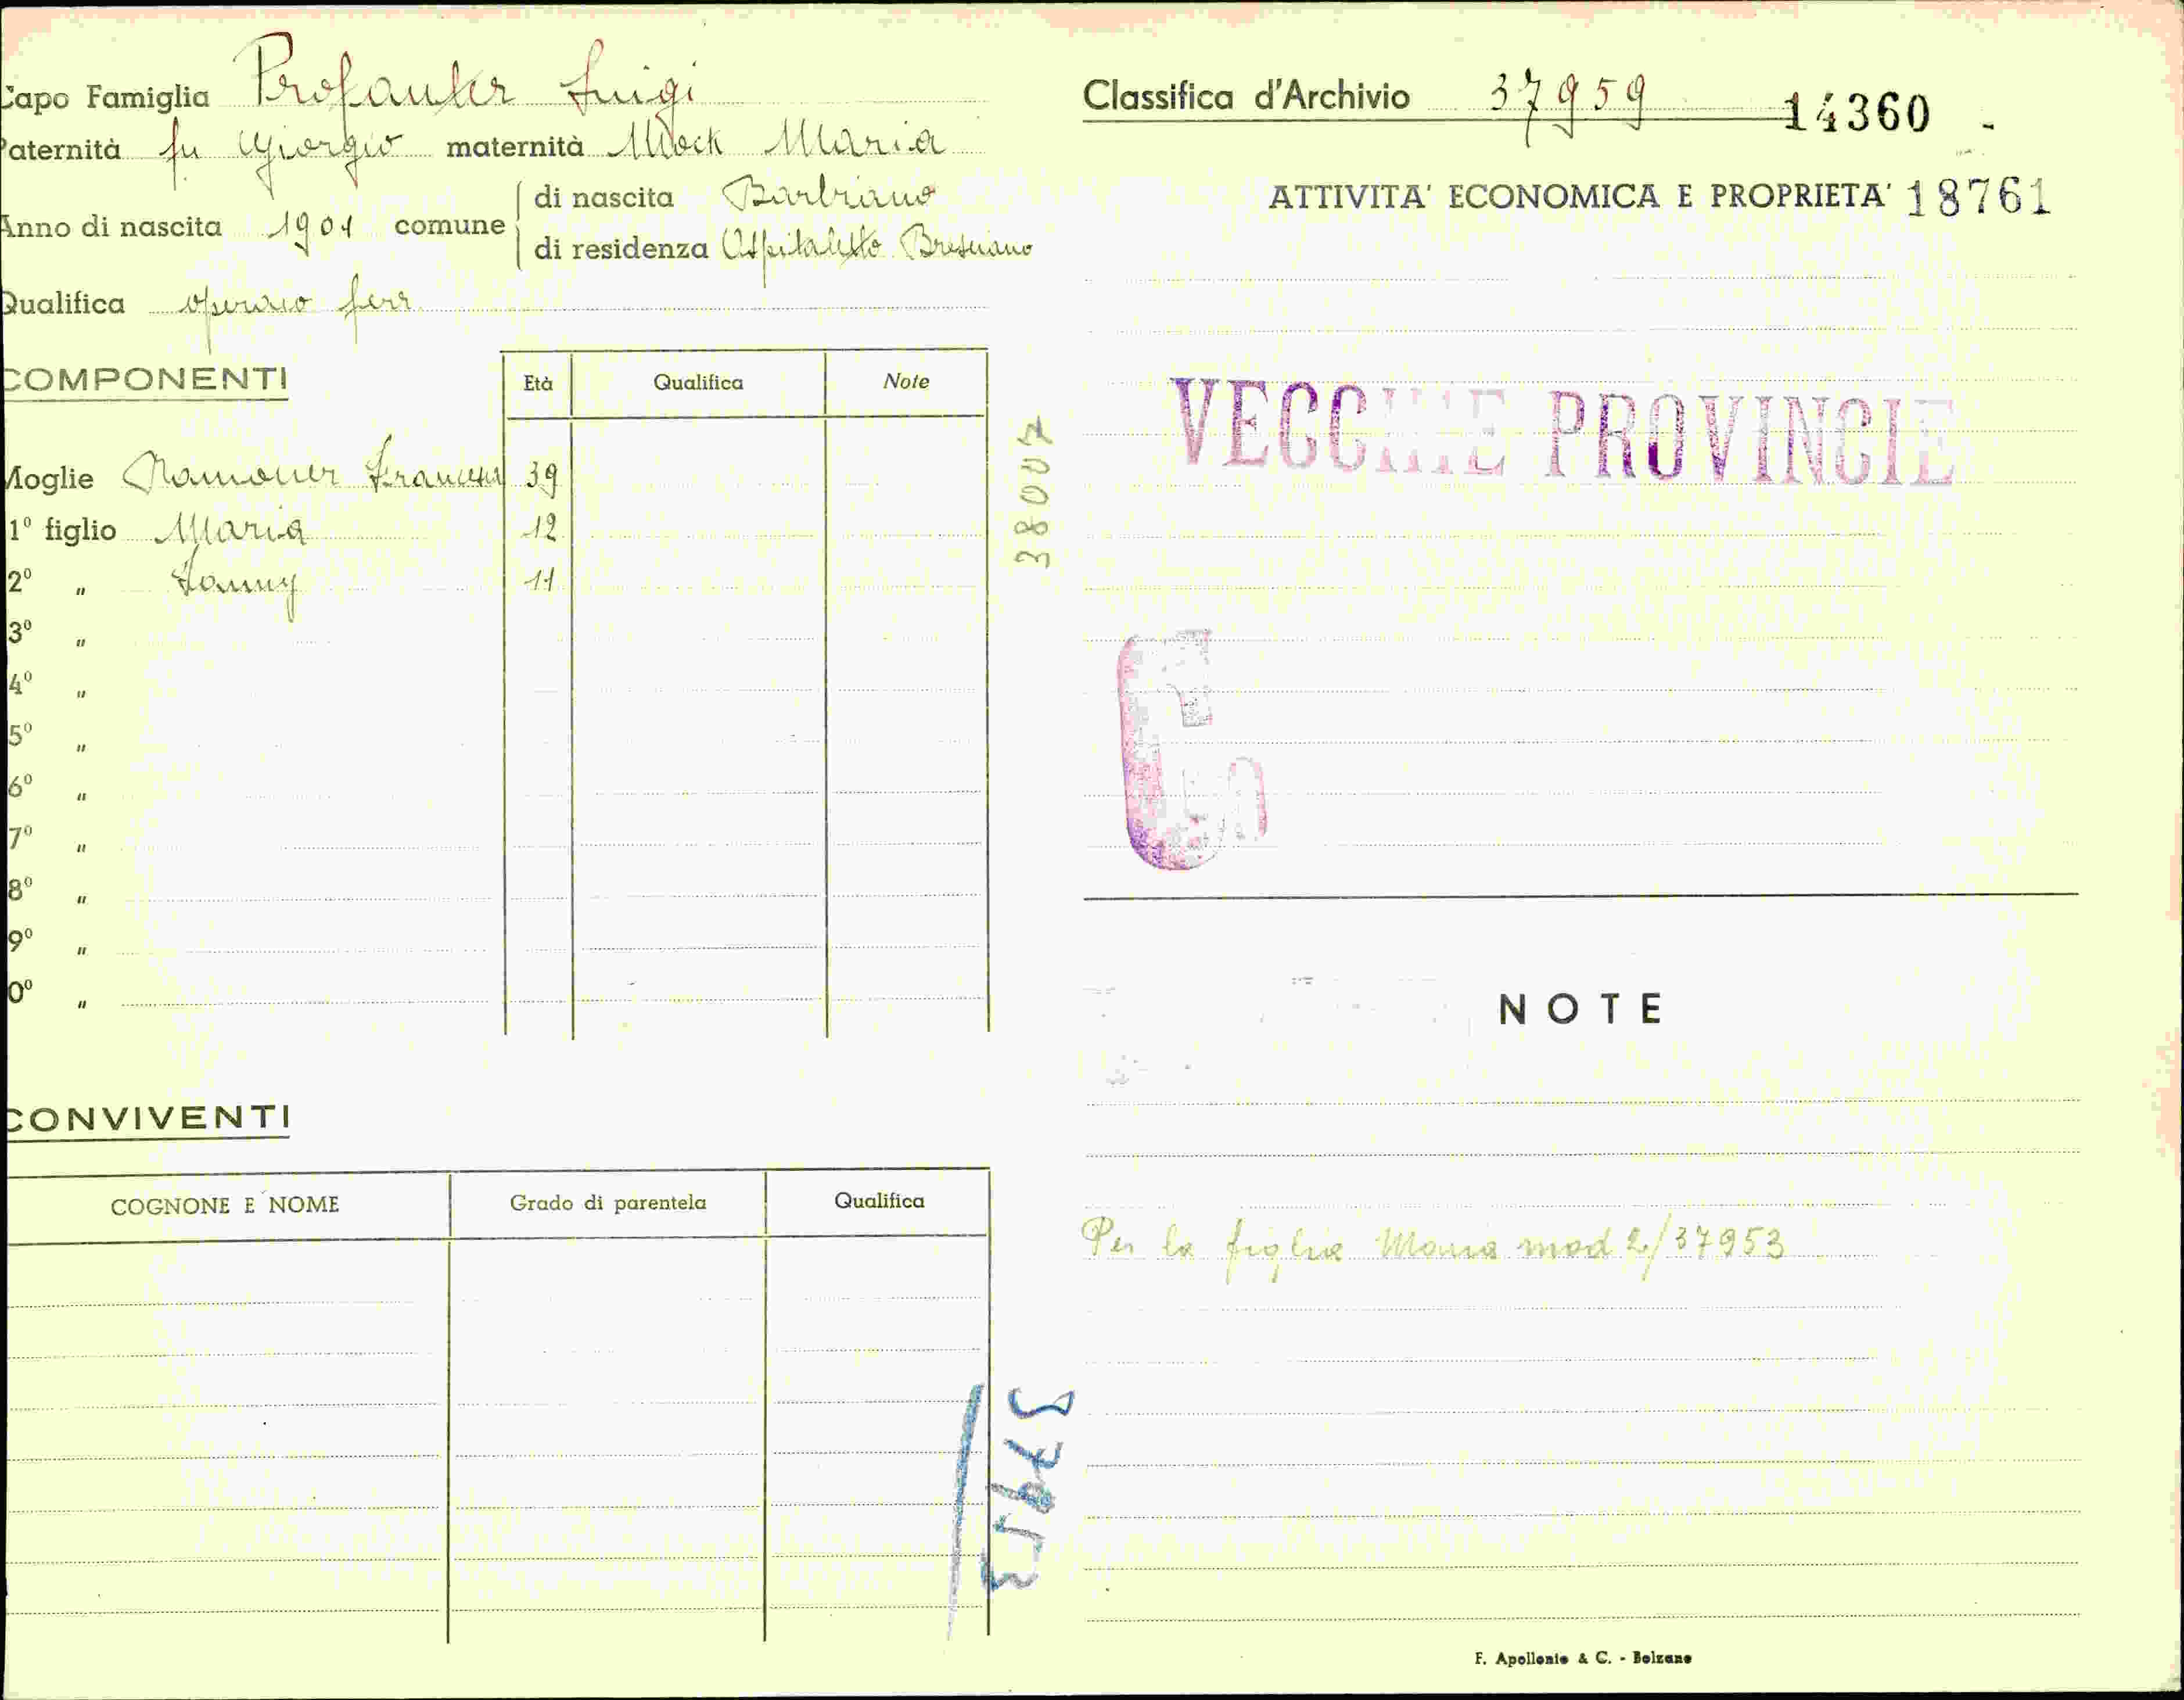 Capo Famiglia Profanter Luigi
Paternità fu Giorgio maternità Mock Maria
Anno di nascita 1901 comune di nascita Barbiano
di residenza Ospitaletto Bresciano
Qualifica operaio ferr.
COMPONENTI Età Qualifica Note
Moglie Ramoner Francesca 39
1º figlio Maria 12
2º " Fanny 11
3º "
4º "
5º "
6º "
7º "
8º "
9º "
0º "
38007
CONVIVENTI
COGNONE E NOME Grado di parentela Qualifica
37953
Classifica d'Archivio 37959 14360 -
ATTIVITA' ECONOMICA E PROPRIETA' 18761
VECCHIE PROVINCIE
NOTE
Per la figlia Maria mod 2/37953
F. Apollonio & C. - Bolzano